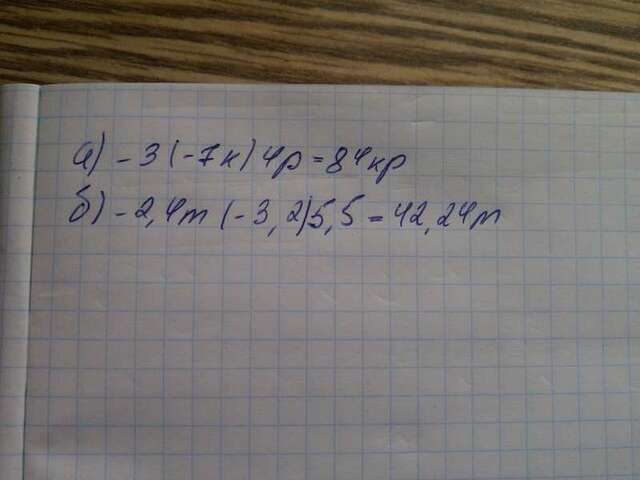 а) -3(-7к)4р=84кр
б) -2,4m(-3,2)5,5=42,24m